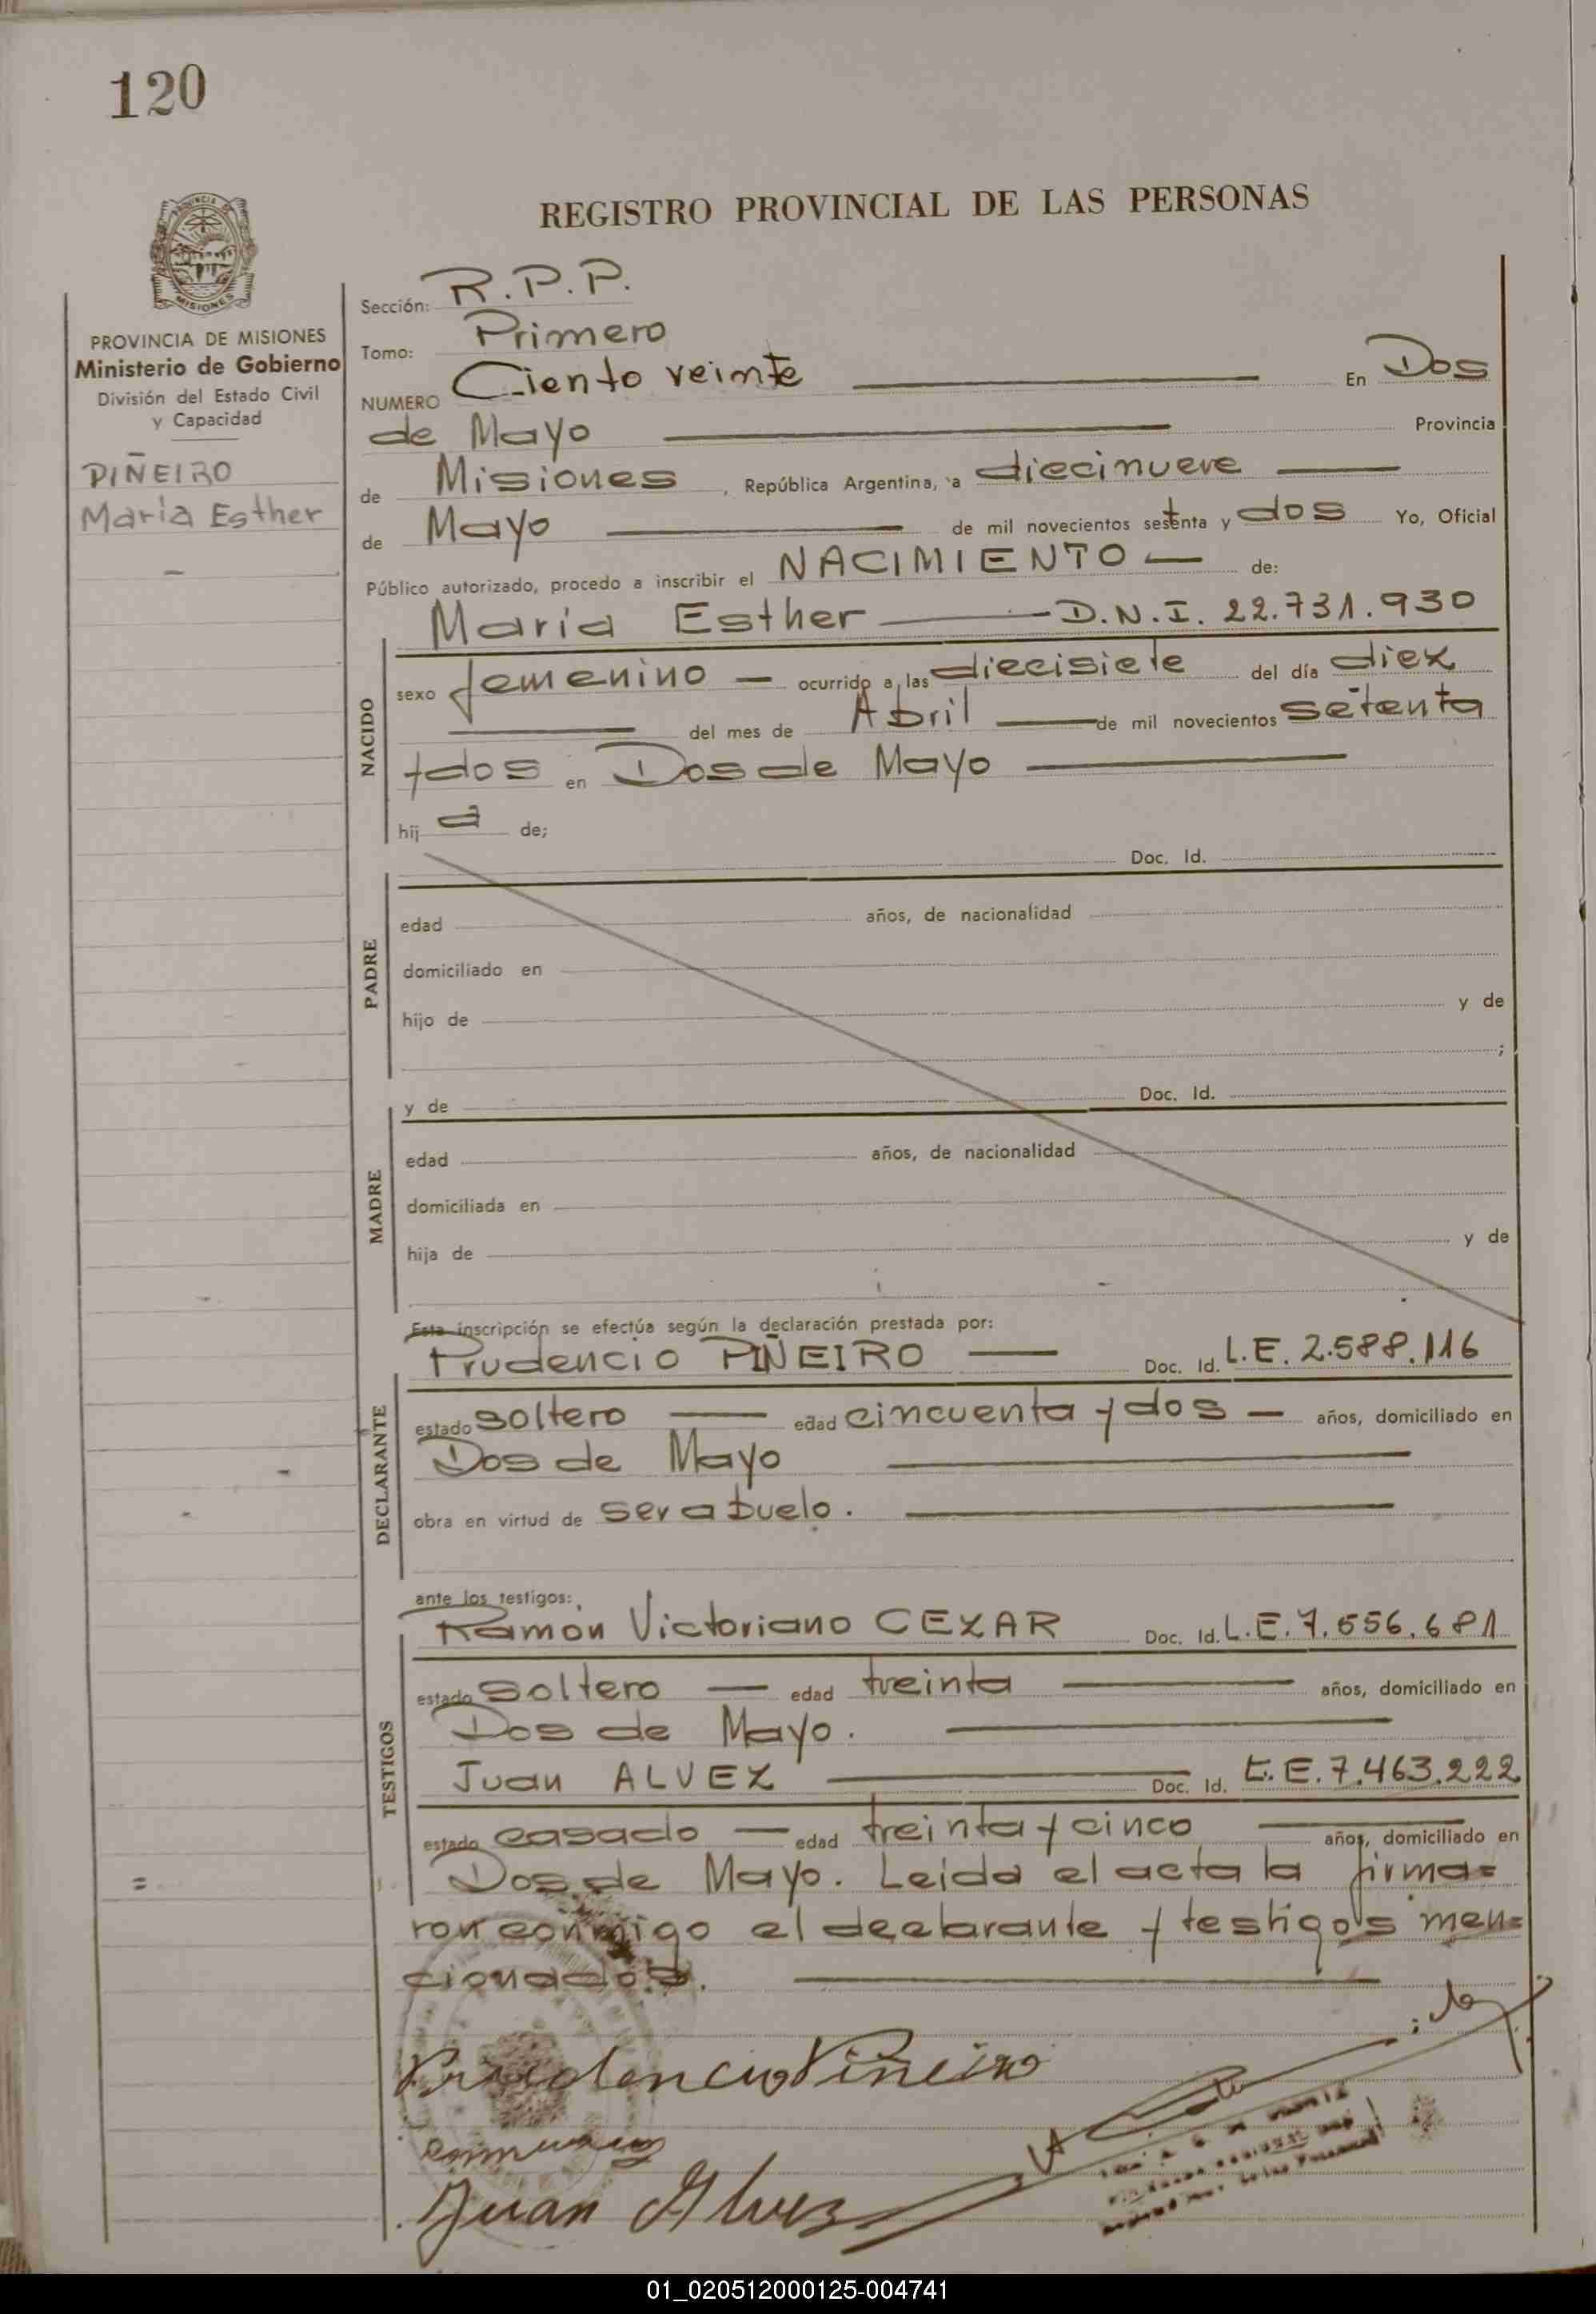 120
REGISTRO PROVINCIAL DE LAS PERSONAS
MISIONES
PROVINCIA DE MISIONES
Ministerio de Gobierno
División del Estado Civil
y Capacidad
PIÑEIRO
María Esther
Sección: R.P.P.
Tomo: Primero
NUMERO Ciento veinte En Dos
de Mayo Provincia
de Misiones, República Argentina, a diecinueve
de Mayo de mil novecientos setenta y dos Yo, Oficial
Público autorizado, procedo a inscribir el NACIMIENTO — de:
María Esther — D.N.I. 22.731.930
NACIDO
sexo femenino — ocurrido a las diecisiete del día diez
del mes de Abril — de mil novecientos setenta
y dos en Dos de Mayo
hij a de;
Doc. Id.
PADRE
edad años, de nacionalidad
domiciliado en
hijo de y de
;
y de Doc. Id.
MADRE
edad años, de nacionalidad
domiciliada en
hija de y de
Esta inscripción se efectúa según la declaración prestada por:
Prudencio PIÑEIRO — Doc. Id. L.E. 2.588.116
DECLARANTE
estado soltero — edad cincuenta y dos — años, domiciliado en
Dos de Mayo
obra en virtud de ser abuelo.
ante los testigos:
Ramon Victoriano CEZAR Doc. Id. L.E. 7.556.681
TESTIGOS
estado soltero — edad treinta — años, domiciliado en
Dos de Mayo.
Juan ALVEZ — Doc. Id. L.E. 7.463.222
estado casado — edad treinta y cinco años, domiciliado en
Dos de Mayo. Leida el acta la firma=
ron conmigo el declarante y testigos men=
cionados.
Prudencio Piñeiro
Juan Alvez
01_020512000125-004741